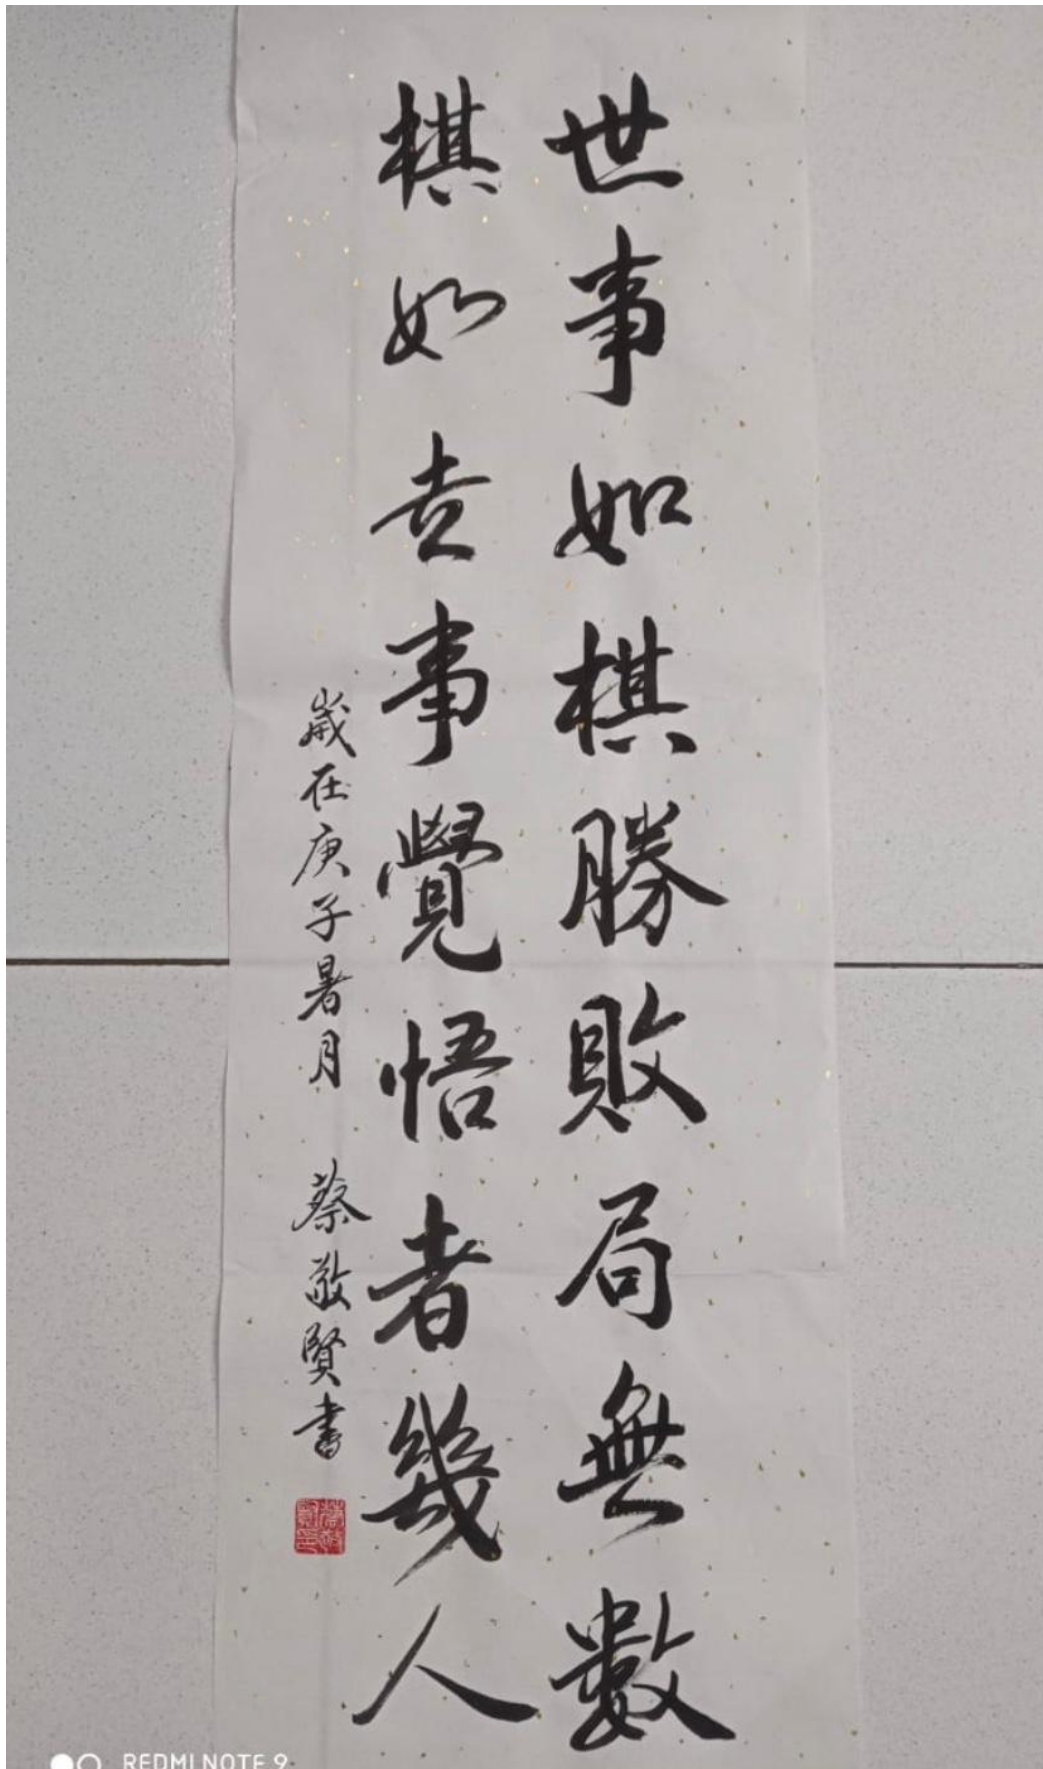 世事如棋勝敗局無數
棋如世事覺悟者幾人
歲在庚子暑月 蔡敬賢書
REDMI NOTE 9